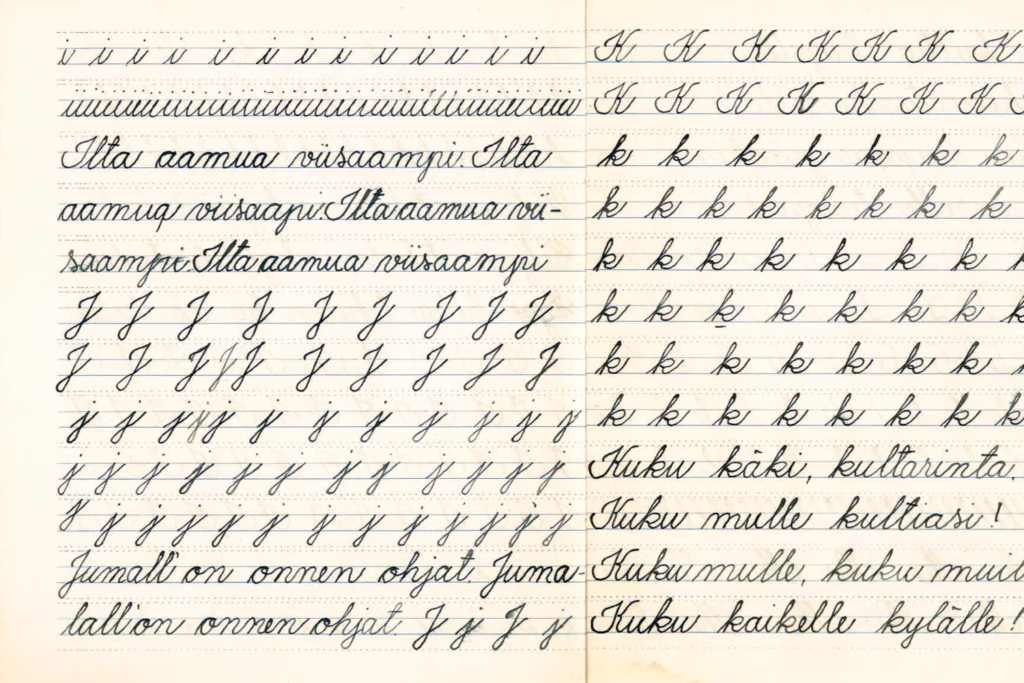 i i i i i i i i i i i i i
Ilta aamua viisaampi. Ilta
aamua viisaapi. Ilta aamua vii-
saampi. Ilta aamua viisaampi
J J J J J J J J J
J J J J J J J J J J
j j j j j j j j j j j j
j j j j j j j j j j j j
j j j j j j j j j j j j j
Jumall' on onnen ohjat. Juma-
lall'on onnen ohjat. J j J j
K K K K K K K
K K K K K K K
k k k k k k k
k k k k k k k k
k k k k k k k k
k k k k k k k k
k k k k k k k
k k k k k k k k
Kuku käki, kultarinta.
Kuku mulle kultiasi!
Kuku mulle, kuku muil
Kuku kaikelle kylälle!